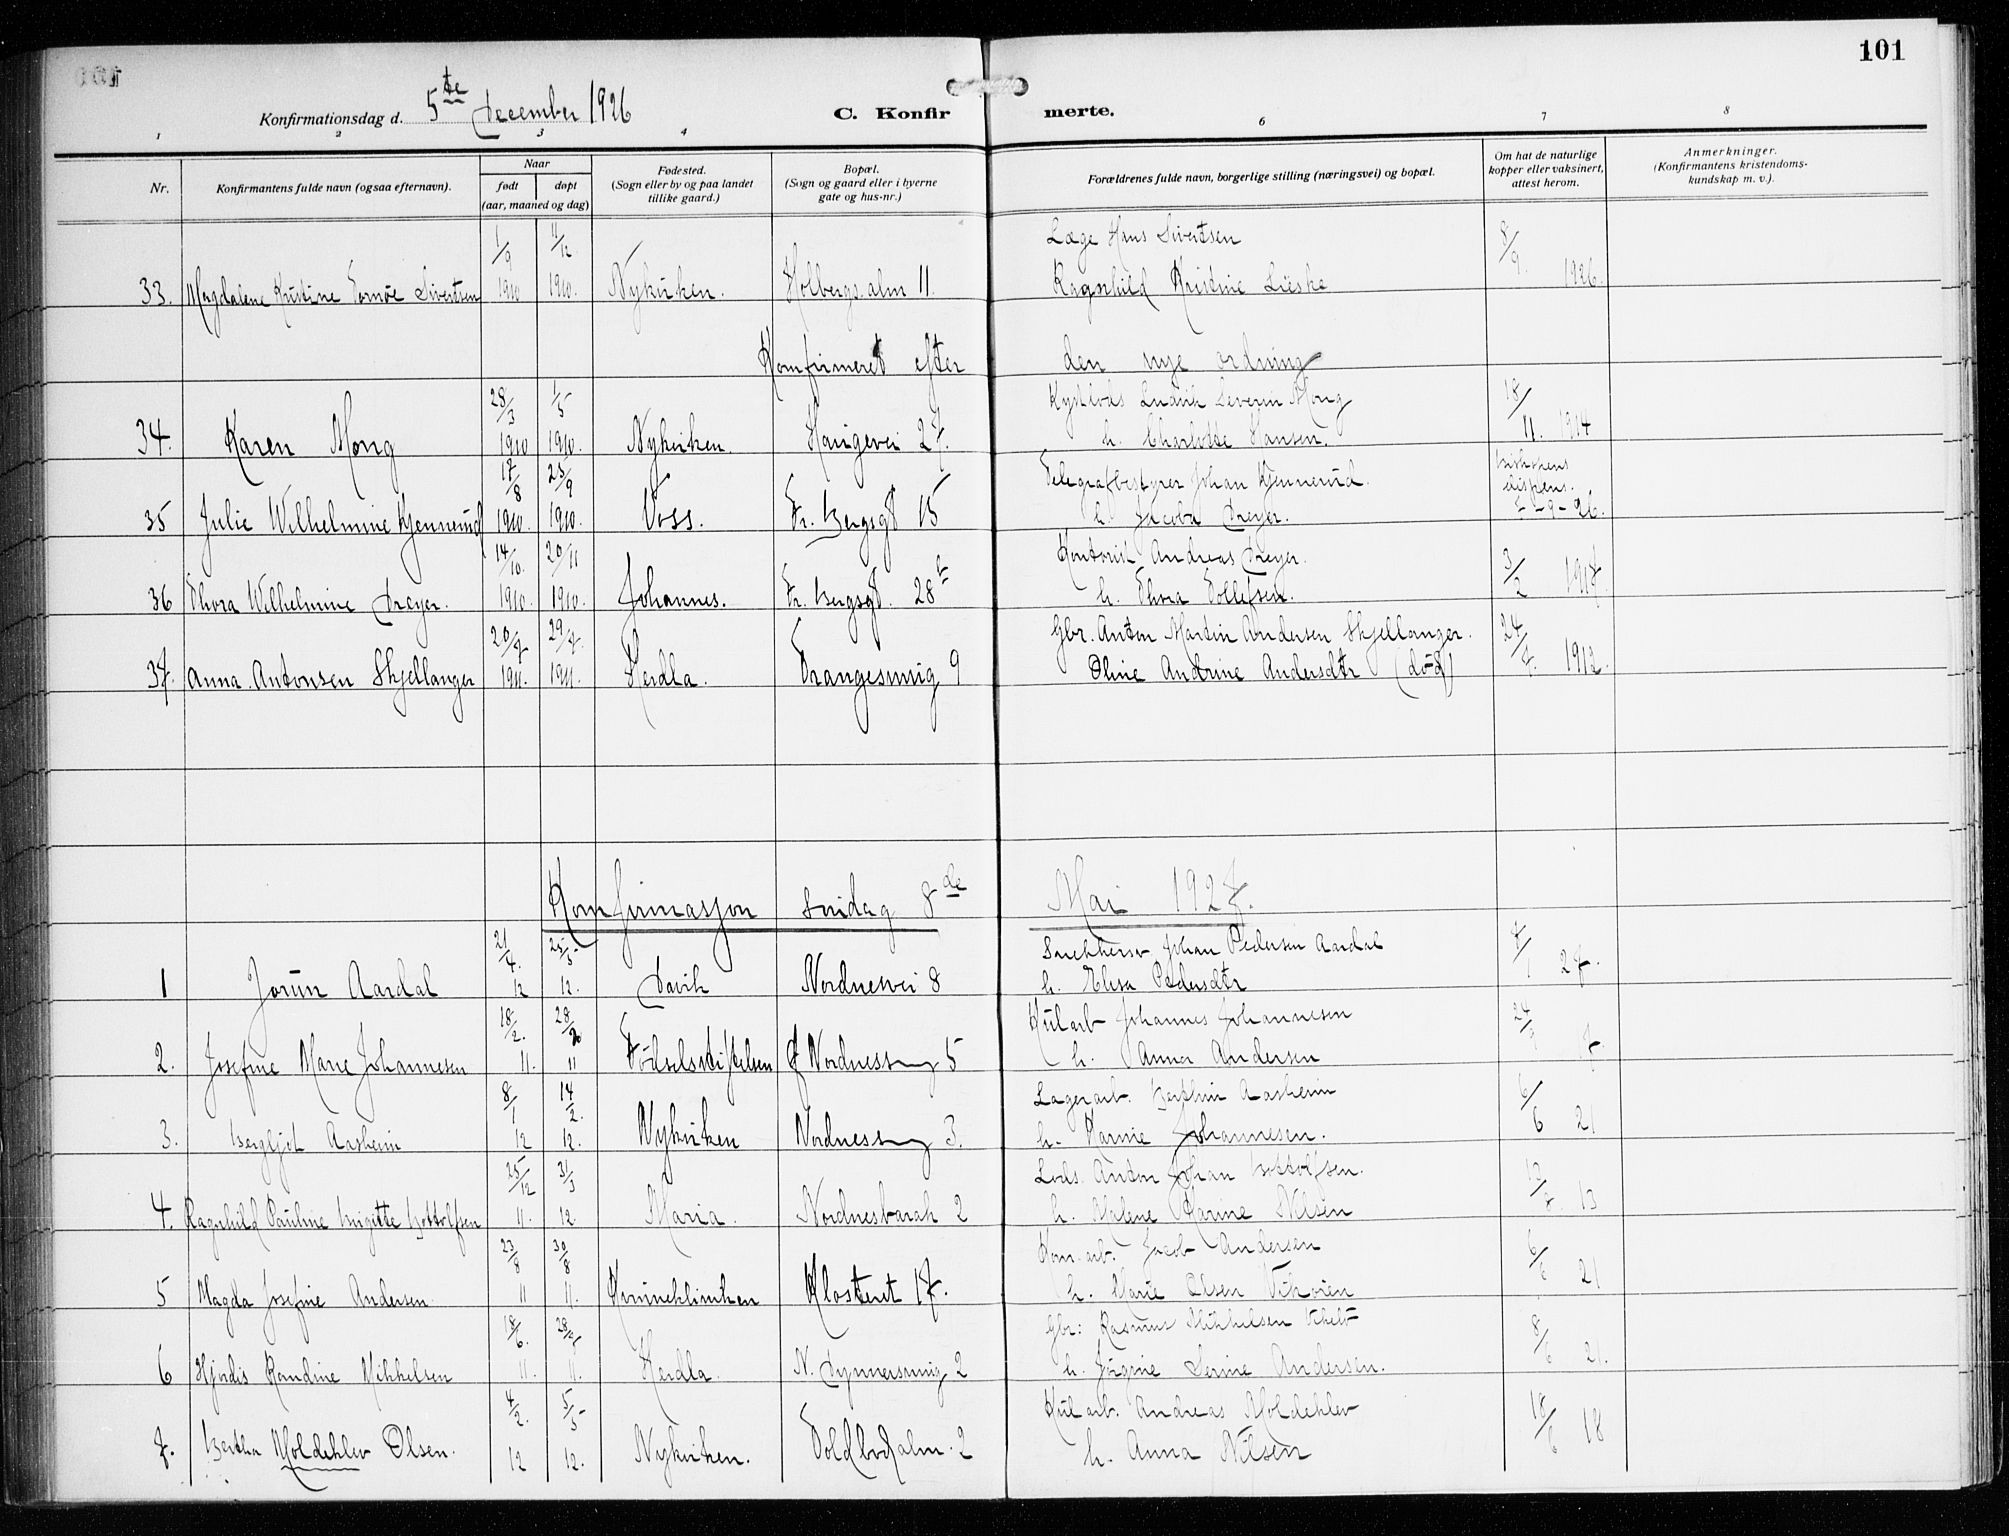 101
Konfirmationsdag d. 5te December 1926
C. Konfirmerte.
1 2 3 4 6 7 8
Nr.
Konfirmantens fulde navn (ogsaa efternavn).
Naar
født
døpt
(aar, maaned og dag)
Fødested.
(Sogn eller by og paa landet
tillike gaard.)
Bopæl.
(Sogn og gaard eller i byerne
gate og hus-nr.)
Forældrenes fulde navn, borgerlige stilling (næringsvei) og bopæl.
Om hat de naturlige
kopper eller vaksinert,
attest herom.
Anmerkninger.
(Konfirmantens kristendoms-
kundskap m. v.).
1/9 4/12 Læge Hans Sivertsen 8/9
33. Magdalene Kristine Tornøe Sivertsen 1910 1910. Nykirken. Holbergs alm 11. Ragnhild Kristine Lieske 1926.
Konfirmeret efter den nye ordning
28/3 1/5 Kystlods Ludvik Severin Mong 18/
34. Karen Mong 1910 1910. Nykirken. Haugevei 27. h. Charlotte Hansen. 11. 1914
17/8 25/9 Telegrafbestyrer Johan Kjennerud. bishopens dispens.
35 Julie Wilhelmine Kjennerud 1910. 1910. Voss. Fr. Bergsgt 15 h. Jacoba Dreyer. 9-26.
14/10. 20/11 Kontorist Andreas Dreyer. 3/2
36 Thora Wilhelmine Dreyer. 1910. 1910. Johannes. Fr. Bergsgt. 28b h. Thora Tollefsen. 1917.
20/7 29/7. Gbr. Anton Martin Andersen Skjellanger. 24/7.
37. Anna Antonsen Skjellanger 1911. 1911. Herdla. Trangesmug 9 Oline Andrine Andersdtr (død) 1912.
Konfirmasjon søndag 8de Mai 1927.
21/4. 25/5 Snekkersv. Johan Pedersen Aardal 7/1
1 Jorun Aardal 12 12. Davik Nordnesvei 8 h. Elisa Pedersdtr 27.
18/2. 28/2 Kularb Johannes Johannesen 24/
2. Josefine Marie Johannesen 11. 11 Fødselsstiftelsen Nordnessmug 5 h. Anna Andersen
8/1 14/2. Lagerarb. Berthin Aasheim 6/6
3. Bergljot Aasheim 12 12. Nykirken Nordnessmug 3. h. Karine Johannesen. 21
25/12 31/3 Lods. Anton Johan Bottolfsen.
4. Ragnhild Pauline Birgitte Bottolfsen 11. 12. Maria. Nordnesbarak 2 h. Malene Karine Nilsen 13
23/8 30/8 Kom. arb. Jacob Andersen 6/6
5 Magda Josefine Andersen 11 11. Kvineklinikken Klosteret 17. h. Marie Olsen 21
18/6. Gbr: Rasmus Mikkelsen 8/6
6 Hjørdis Randine Mikkelsen 11. 11. Herdla. N. Dynnersmug 2 h. Jørgine Serine Andersen. 21.
4/2. 5/5 Kularb. Andreas Moldeklev 18/6
7. Bertha Moldeklev Olsen. 12 12. Nykirken. Toldbodalm. 2 h. Anna Nilsen 18